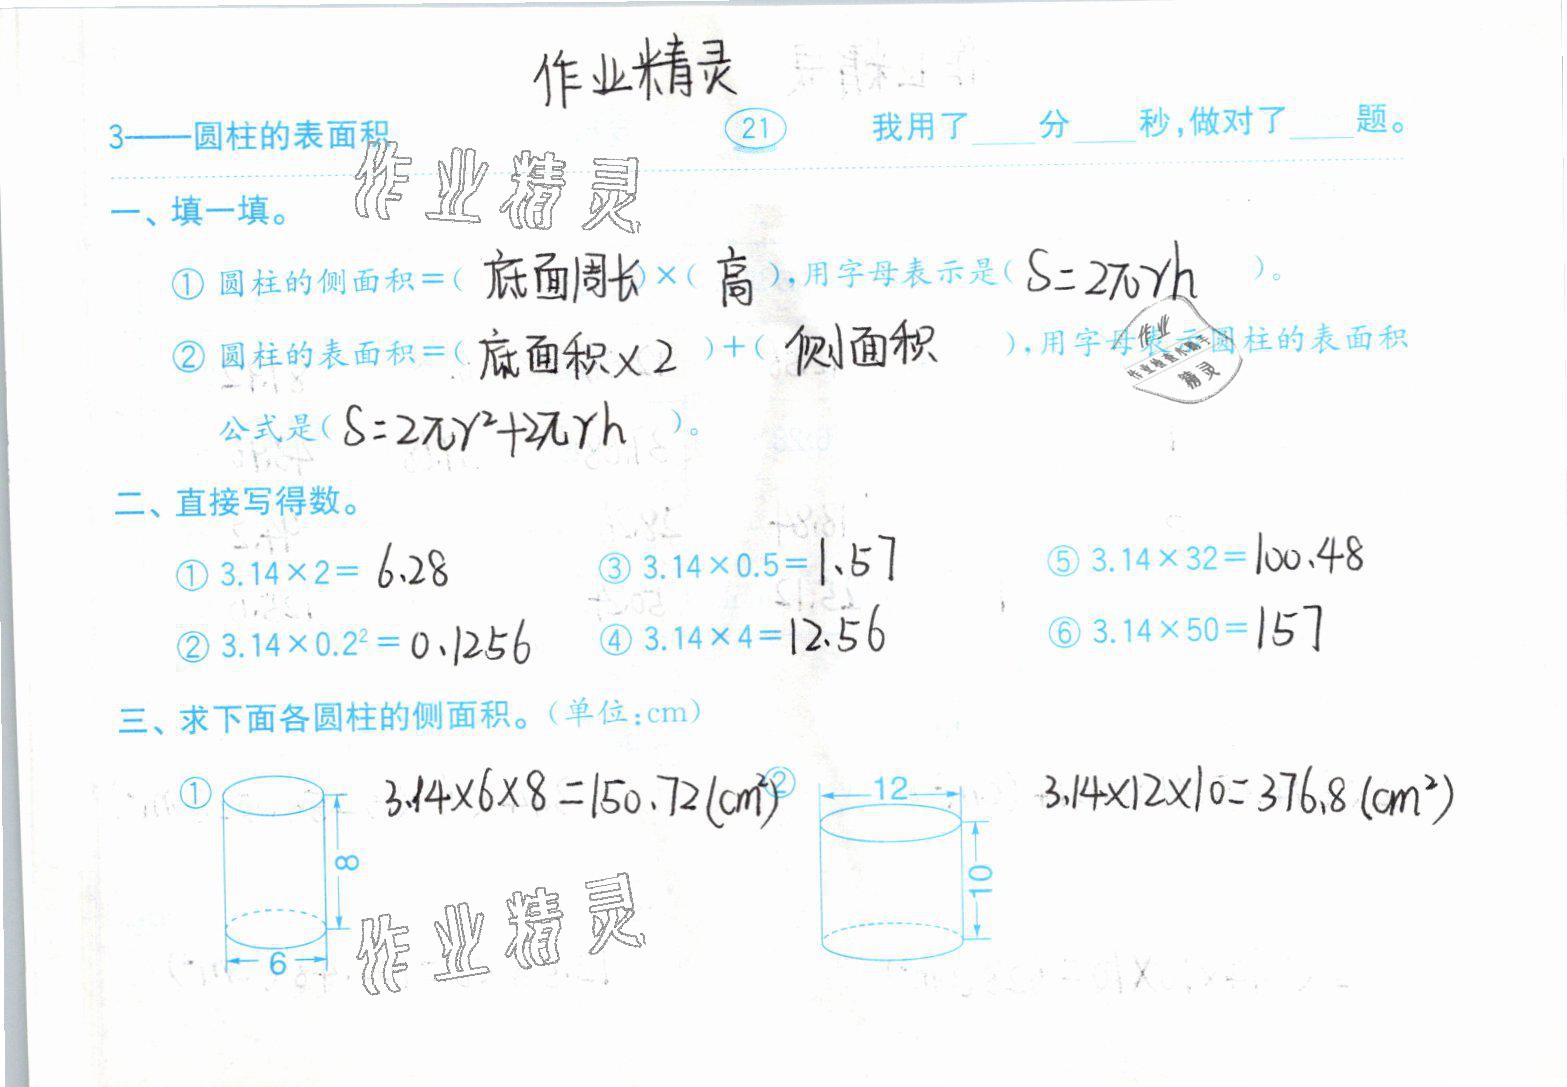 作业精灵
3——圆柱的表面积 21 我用了____分____秒,做对了____题。
作业精灵
一、填一填。
① 圆柱的侧面积=(底面周长)×(高),用字母表示是(S=2πrh)。
② 圆柱的表面积=(底面积×2)+(侧面积),用字母表示圆柱的表面积
公式是(S=2πr²+2πrh)。
作业
作业检查小助手
精灵
二、直接写得数。
① 3.14×2=6.28 ③ 3.14×0.5=1.57 ⑤ 3.14×32=100.48
② 3.14×0.2²=0.1256 ④ 3.14×4=12.56 ⑥ 3.14×50=157
三、求下面各圆柱的侧面积。(单位:cm)
① 3.14×6×8=150.72(cm²) ② 12 3.14×12×10=376.8(cm²)
8 10
6
作业精灵